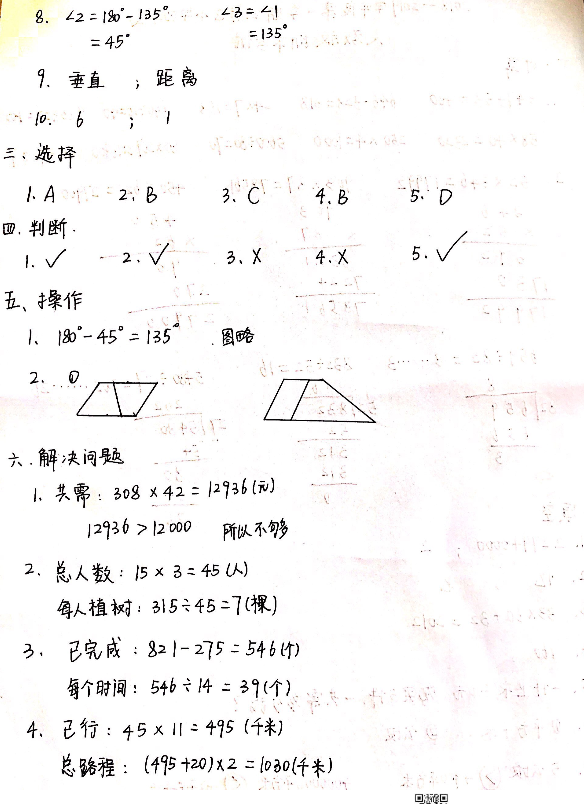 8. ∠2=180°-135° ∠3=∠1
=45° =135°
9. 垂直 ; 距离
10. 6 ; 1
三、选择
1. A 2. B 3. C 4. B 5. D
四.判断.
1. ✓ 2. ✓ 3. X 4. X 5. ✓
五、操作
1. 180°-45°=135° .图略
2. ①
六.解决问题
1. 共需: 308×42=12936(元)
12936>12000 所以不够
2. 总人数: 15×3=45(人)
每人植树: 315÷45=7(棵)
3. 已完成: 821-275=546(个)
每个时间: 546÷14=39(个)
4. 已行: 45×11=495 (千米)
总路程: (495+20)×2=1030(千米)